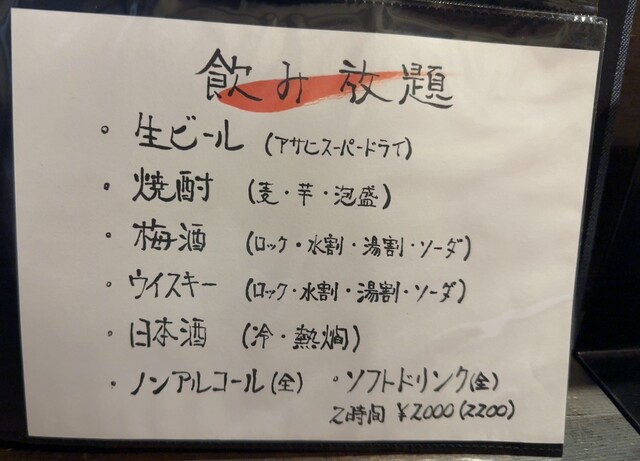 飲み放題
・生ビール (アサヒスーパードライ)
・焼酎 (麦・芋・泡盛)
・梅酒 (ロック・水割・湯割・ソーダ)
・ウイスキー (ロック・水割・湯割・ソーダ)
・日本酒 (冷・熱燗)
・ノンアルコール(全) ・ソフトドリンク(全)
2時間 ¥2000(2200)